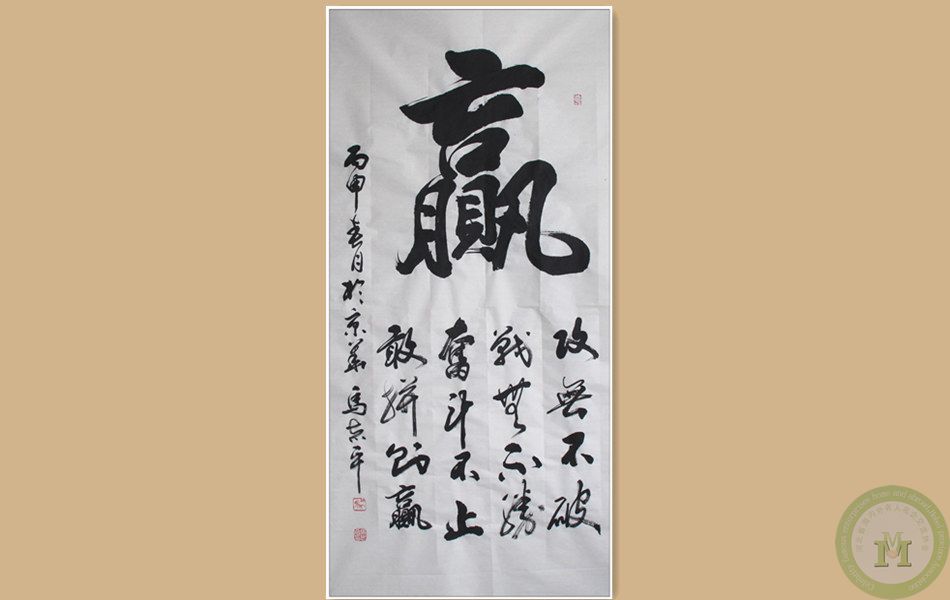 贏
攻無不破
戰無不勝
奮斗不止
敢拼則贏
丙申春月於京華 馬志平